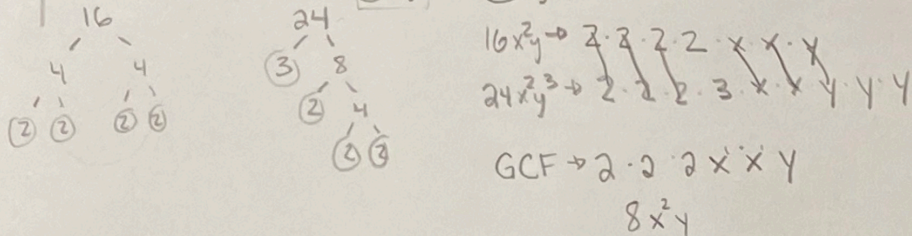 16
4 4
2 2 2 2
24
3 8
2 4
2 2
16x²y → 2·2·2·2·x·x·y
24x²y³ → 2·2·2·3·x·x·y·y·y
GCF → 2·2·2 x·x·y
8x²y